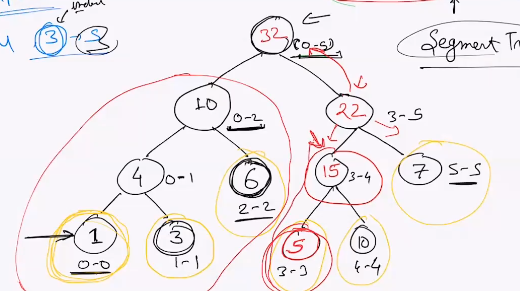 index
3 - 5 3
32
(0-5)
Segment Tr
10
0-2
22
3-5
4
0-1
6
2-2
15
3-4
7
5-5
1
0-0
3
1-1
5
3-3
10
4-4